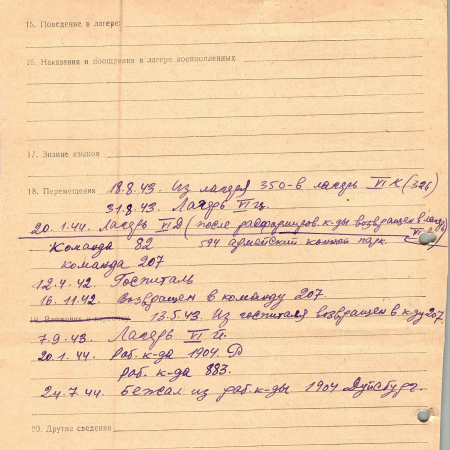 15. Поведение в лагере:
16. Наказания и поощрения в лагере военнопленных
17. Знание языков
18. Перемещения 18.8.43. Из лагеря 350-в лагерь VI К (326)
31.8.43. Лагерь VI
20.1.44. Лагерь VI Д (после расформиров. к-ды возвращен в лагерь
VI
Команда 82 594 армейский конный парк.
команда 207
12.4.42. Госпиталь
16.11.42. Возвращен в команду 207.
13.5.43. Из госпиталя возвращен в к-ду 207.
7.9.43. Лагерь VI
20.1.44. раб. к-да 1904.
раб. к-да 883.
24.7.44. Бежал из раб. к-ды 1904 Дуйсбург.
20. Другие сведения